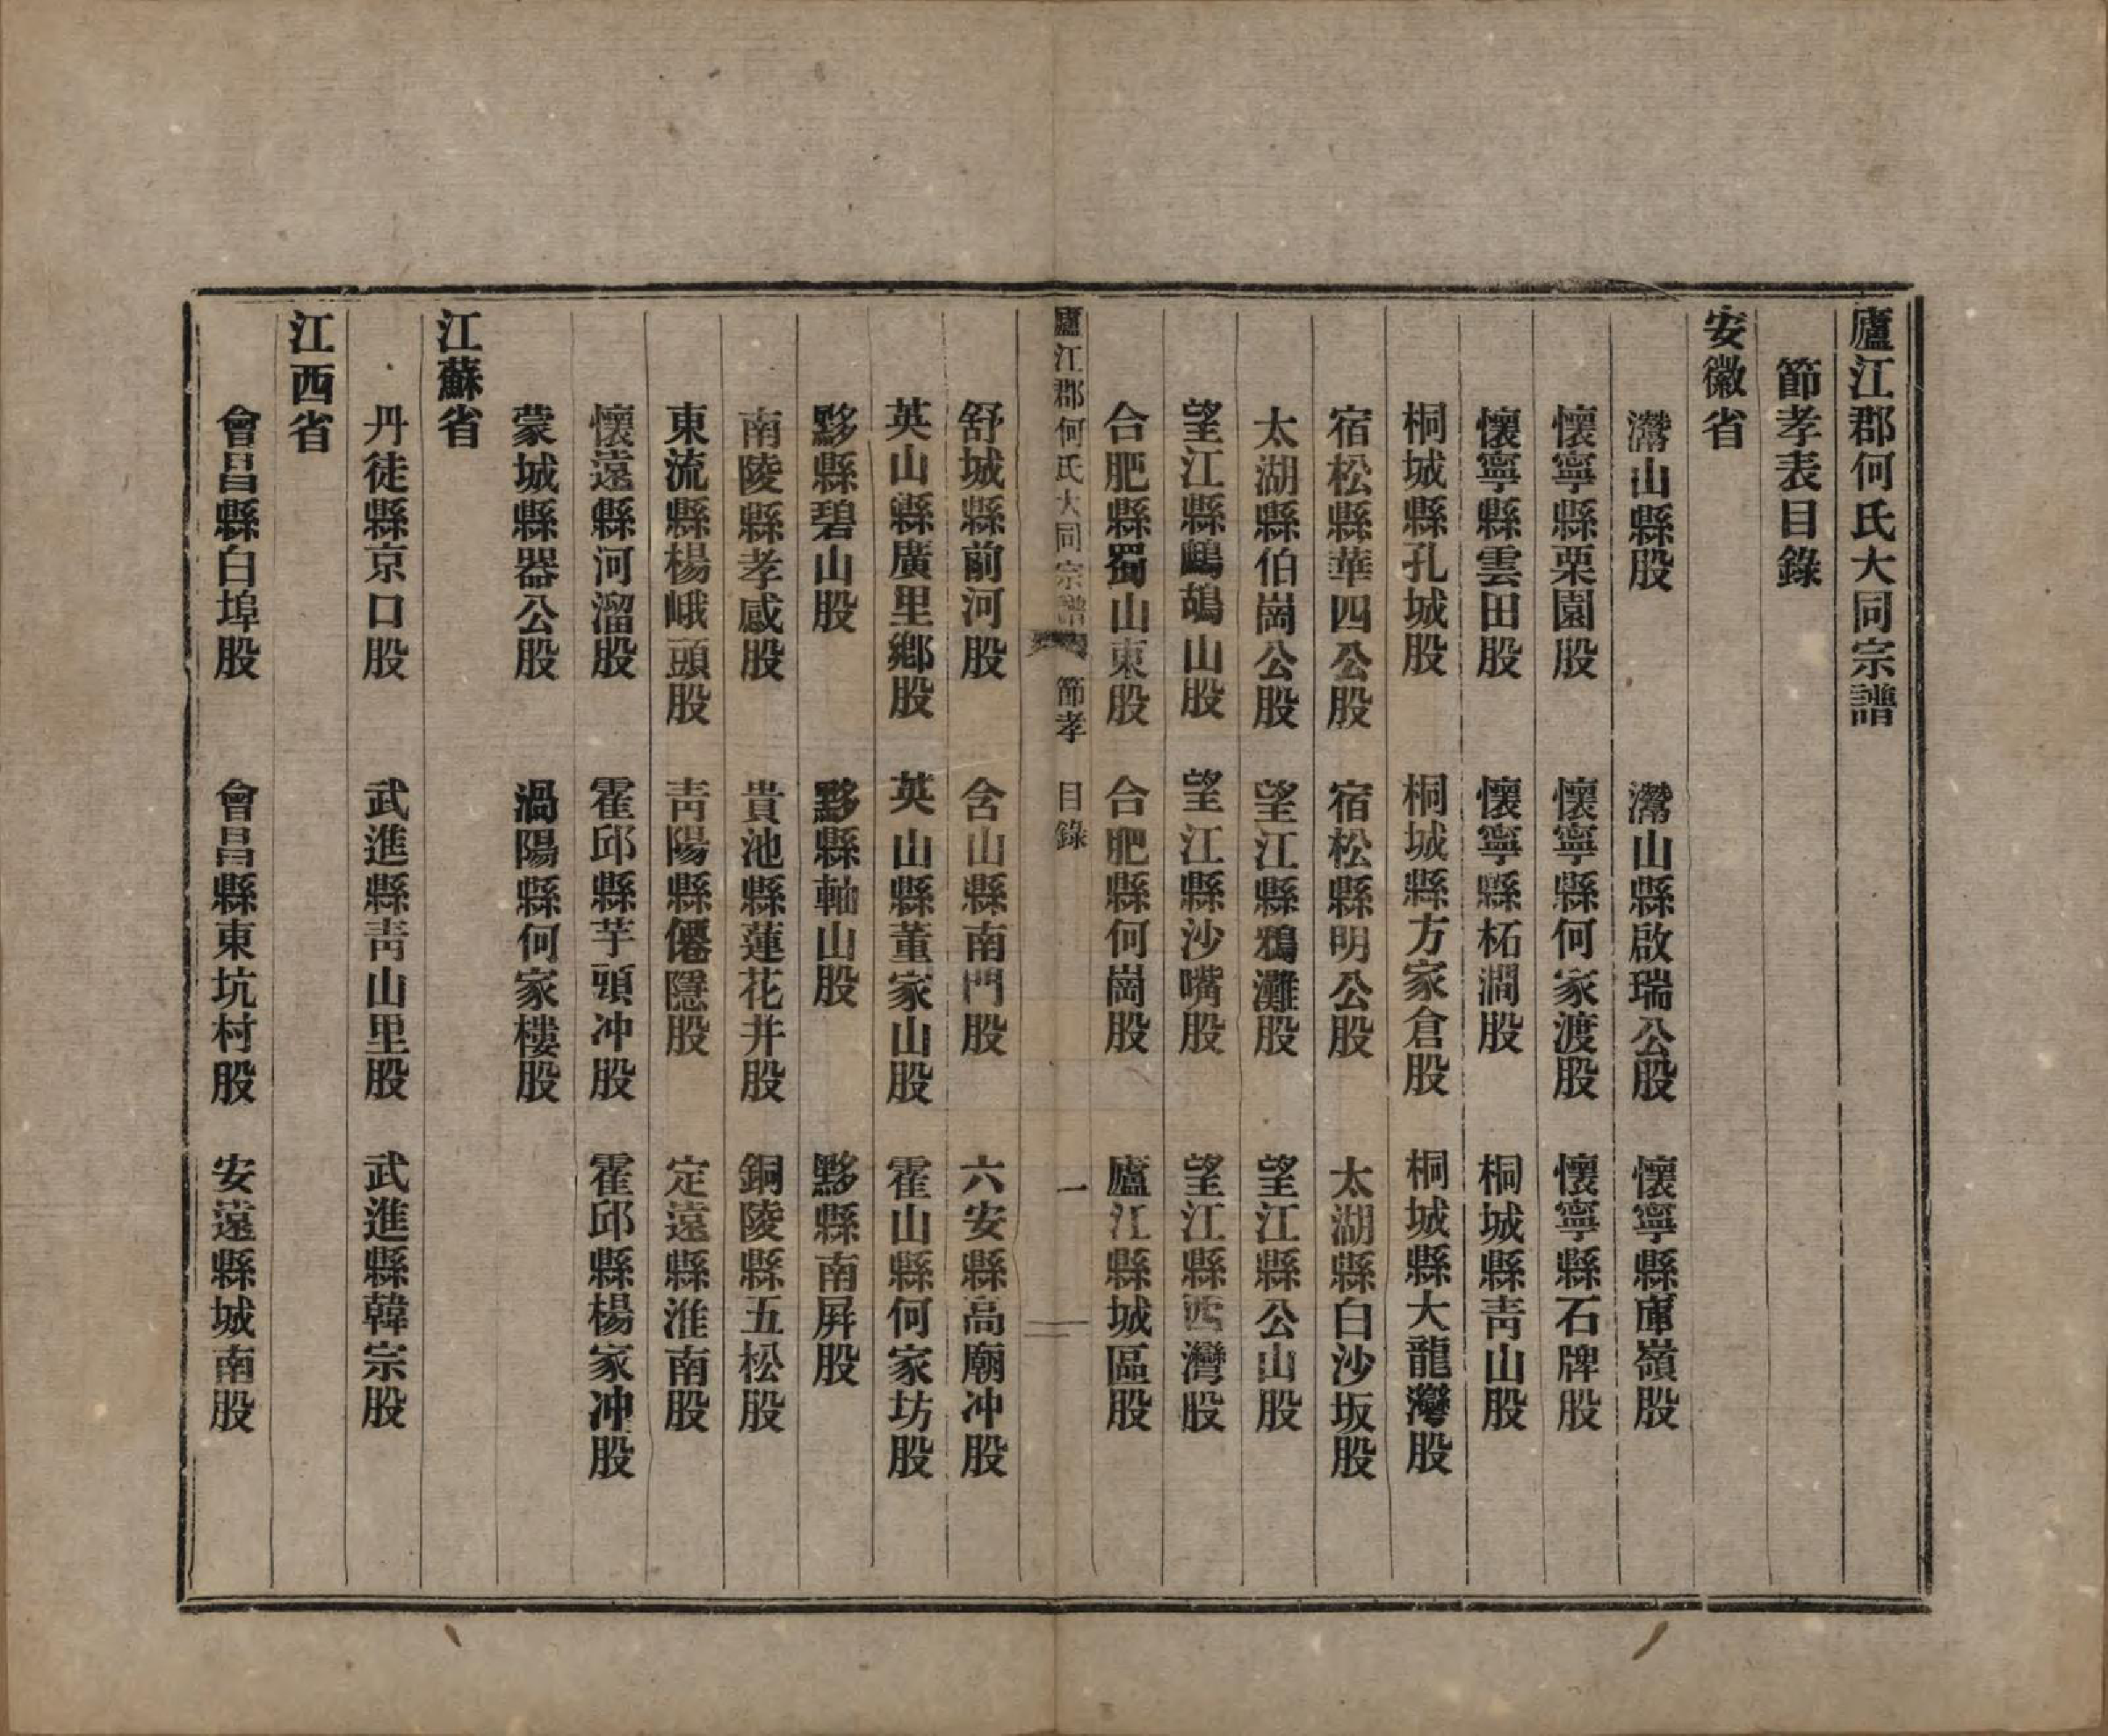 廬江郡何氏大同宗譜
節孝表目錄
安徽省
灊山縣股　灊山縣啟瑞公股　懷寧縣庫嶺股
懷寧縣栗園股　懷寧縣何家渡股　懷寧縣石牌股
懷寧縣雲田股　懷寧縣柘澗股　桐城縣靑山股
桐城縣孔城股　桐城縣方家倉股　桐城縣大龍灣股
宿松縣華四公股　宿松縣明公股　太湖縣白沙坂股
太湖縣伯崗公股　望江縣鴉灘股　望江縣公山股
望江縣鷓鴣山股　望江縣沙嘴股　望江縣西灣股
合肥縣蜀山東股　合肥縣何崗股　廬江縣城區股
廬江郡何氏大同宗譜　節孝　目錄　一
舒城縣前河股　含山縣南門股　六安縣高廟冲股
英山縣廣里鄉股　英山縣董家山股　霍山縣何家坊股
黟縣碧山股　黟縣軸山股　黟縣南屛股
南陵縣孝感股　貴池縣蓮花井股　銅陵縣五松股
東流縣楊峨頭股　靑陽縣僊隱股　定遠縣淮南股
懷遠縣河溜股　霍邱縣芋頭冲股　霍邱縣楊家冲股
蒙城縣器公股　渦陽縣何家樓股
江蘇省
丹徒縣京口股　武進縣靑山里股　武進縣韓宗股
江西省
會昌縣白埠股　會昌縣東坑村股　安遠縣城南股